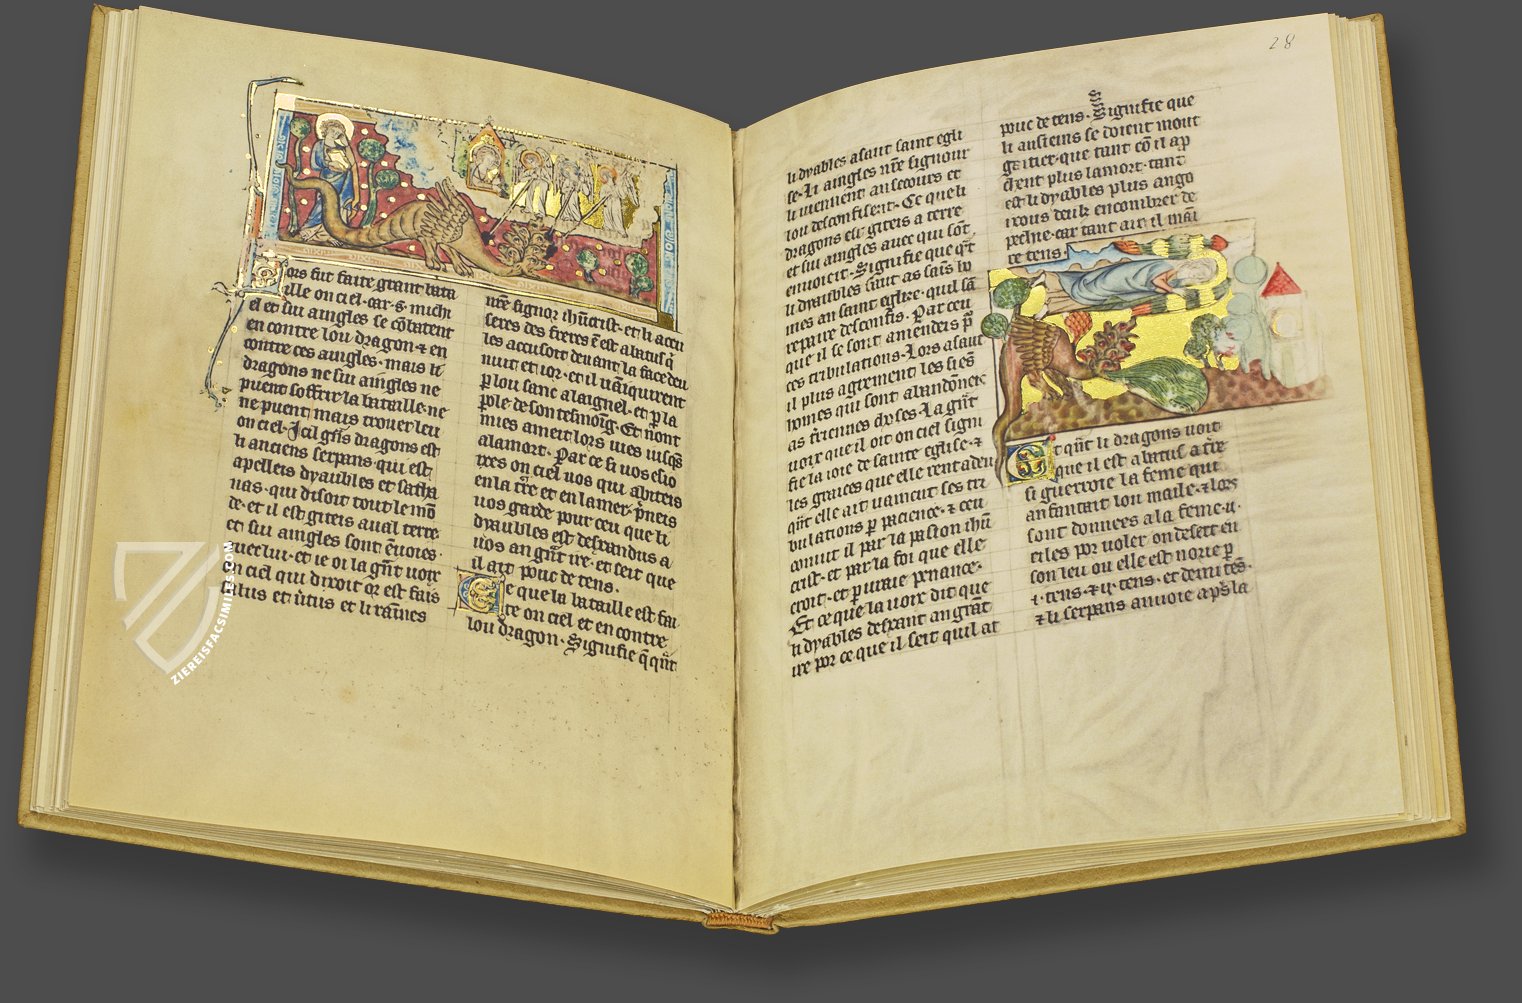 lors fut faite grant bata
ille on ciel· car ·s· michi
el et sui aingles se cōbatent
en contre lou dragon ⁊ en
contre ces aingles· mais li
dragons ne sui aingles ne
puent soffrir la bataille· ne
ne puent mais trouer leu
on ciel· Icil gñs dragons est
li anciens serpans· qui est
apelleis dyaubles et satha
nas· qui disoit tout le mō
de· et il est giteis aual terre
et sui aingles sont ēuoies·
auec lui· et ie oi la gñt uoix
en ciel qui dixoit or est fais
salus et ũtus et li rāines
nr̄e signor ihūcrist· et li accu
seres des freres ē est abatus q̇
les accusoit deuant la face deu
nuit et ior· et il uāiquirent
ꝑ lou sanc a laignel· et ꝑ la
ꝑole de son tesmoīg· Et nont
mies ameit lors uies iusq̄s
a la mort· Par ce si uos esio
ixes on ciel uos qui abiteis
en la tr̄re et en la mer· p̄neis
uos garde pour ceu que li
dyaubles est descandus a
uos an gñt ire· et seit que
il ait pouc de tens·
Ce que la bataille est fai
te on ciel et en contre
lou dragon· Signifie q̄ qñt
28
li dyables asaut saint egli
se· li aingles nr̄e signour
li uiennent au secours et
lou desconfisent· Ce que li
dragons est giteis a terre
et sui aingles auec qui sōt
enuoieit· Signifie que qñt
li dyaubles faut as sains ho
mes an saint eglise· quil sā
repaire desconfis· Par ceu
que il se sont amendeis ꝑ
ces tribulations· Lors asaut
il plus agrement les siēs
homes qui sont abandōneit
as t̄riennes choses· La gñt
uoix que il oit on ciel signi
fie la ioie de sainte eglise· ⁊
les graices que elle rent a deu
qñt elle ait uaincut ses tri
bulations ꝑ pacience· ⁊ ceu
conuit il par la pasion ihū
crist· et par la foi que elle
croit· et ꝑ uraie penance·
Et ce que la uoix dit que
li dyables descant an grāt
ire por ce que il seit quil at
pouc de tens· Signifie que
li ansiens se doient mout
gaitier· que tant cō il ap
chent plus la mort· tant
est li dyables plus ango
ixous deulz encombrer de
pechie· car tant ait il māī
re tens·
Et qñt li dragons uoit
que il est abatus a tr̄re
si guerroie la feme qui
anfantait lou maile· ⁊ lors
sont donnees a la feme ·ii·
eiles por uoler on desert en
son leu ou elle est norie ꝑ
·i· tens· ⁊ ·ii· tens· et demi tēs·
⁊ li serpans anuoie apr̄s la
ZIEREISFACSIMILES.COM